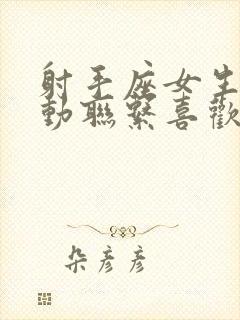 射手座女生
動聯繫喜歡
朵彥彥